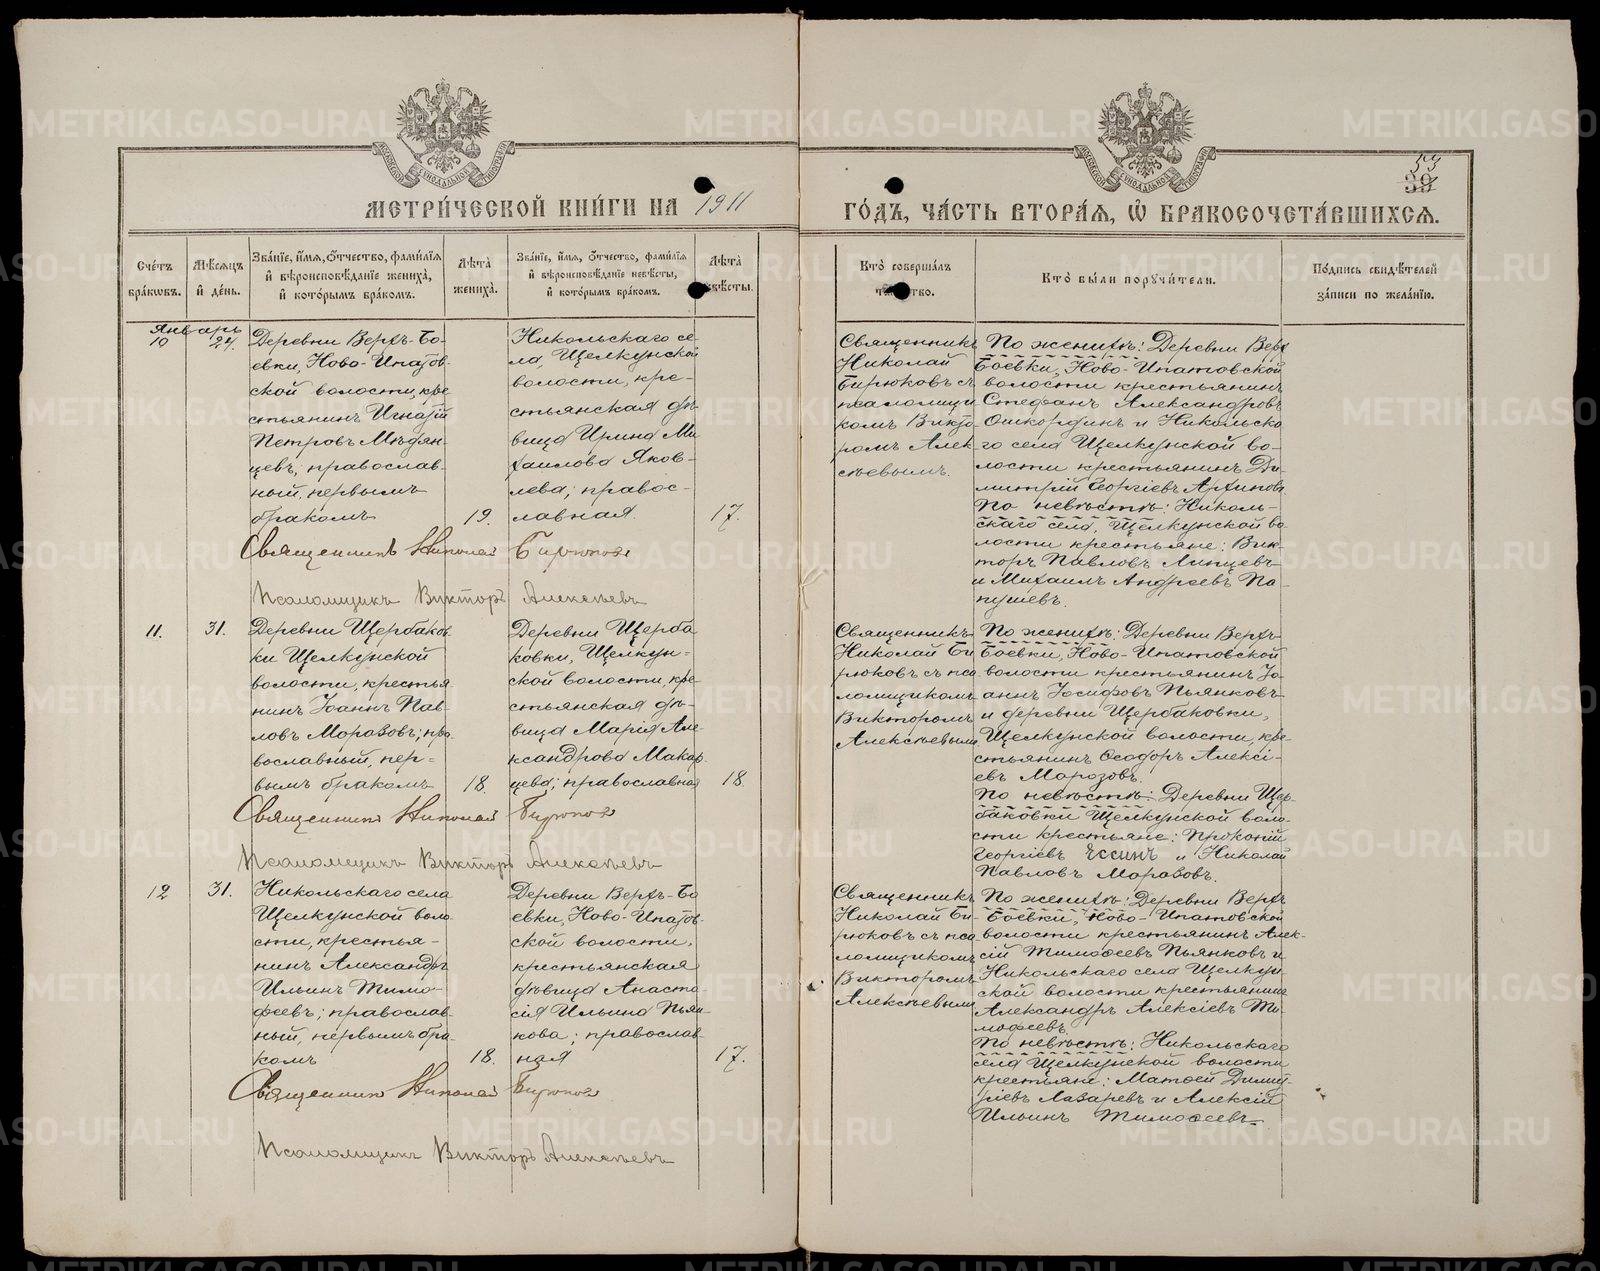 МЕТРИ́ЧЕСКОЙ КНИ́ГИ НА 1911
ГО́ДЪ, ЧА́СТЬ ВТОРА́Я, Ѡ БРАКОСОЧЕТА́ВШИХСЯ.
53
39
Сче́тъ
бра́ковъ.
Мѣ́сяцъ
и҆ де́нь.
Зва́ніе, и҆́мя, ѻ҆́тчество, фами́лія
и҆ вѣроисповѣ́даніе жениха̀,
и҆ кото́рымъ бра́комъ.
Лѣта̀
жениха̀.
Зва́ніе, и҆́мя, ѻ҆́тчество, фами́лія
и҆ вѣроисповѣ́даніе невѣ́сты,
и҆ кото́рымъ бра́комъ.
Лѣта̀
невѣ́сты.
Кто̀ соверша́лъ
та́инство.
Кто̀ бы́ли поручи́тели.
По́дпись свидѣ́телей
за́писи по жела́нію.
Январь
10
24.
Деревни Верхъ-Бо-
евки, Ново-Ипатов-
ской волости, кре
стьянинъ Игнатій
Петровъ Мѣдян-
цевъ, православ-
ный, первымъ
бракомъ
19.
Никольскаго се-
ла, Щелкунской
волости, кре-
стьянская дѣ-
вица Ирина Ми
хаилова Яков-
лева; правос-
лавная.
17.
Священникъ
Николай
Бирюковъ съ
псаломщи
комъ Викто-
ромъ Алек-
сѣевымъ.
По женихѣ: Деревни Верхъ
Боевки, Ново-Ипатовской
волости крестьянинъ
Стефанъ Александровъ
и Никольска
го села Щелкунской во-
лости крестьянинъ Ди-
митрій Георгіевъ Архиповъ
По невѣстѣ: Николь-
скаго села, Щелкунской во
лости крестьяне: Вик-
торъ Павловъ
и Михаилъ Андреевъ Па-
пушевъ.
Священникъ Николай Бирюковъ
Псаломщикъ Викторъ Алексѣевъ
11.
31.
Деревни Щербаков
ки Щелкунской
волости, крестья
нинъ Іоаннъ Пав-
ловъ Морозовъ; пра
вославный, пер-
вымъ бракомъ
18.
Деревни Щерба
ковки, Щелкун-
ской волости, кре-
стьянская дѣ-
вица Марія Але-
ксандрова Макар
цева; православная
18.
Священникъ
Николай Би
рюковъ съ пса
ломщикомъ
Викторомъ
Алексѣевымъ
По женихѣ: Деревни Верхъ-
Боевки, Ново-Ипатовской
волости крестьянинъ Іо-
аннъ Іосифовъ Пьянковъ
и деревни Щербаковки,
Щелкунской волости, кре-
стьянинъ Ѳеодоръ Алексі-
евъ Морозовъ.
По невѣстѣ: Деревни Щер-
баковки Щелкунской воло-
сти крестьяне: Прокопій
Георгіевъ Ессинъ и Николай
Павловъ Морозовъ.
Священникъ Николай Бирюковъ
Псаломщикъ Викторъ Алексѣевъ
12
31.
Никольскаго села
Щелкунской воло
сти, крестья-
нинъ Александръ
Ильинъ Тимо-
феевъ; православ-
ный, первымъ бра-
комъ
18.
Деревни Верхъ-Бо
евки, Ново-Ипатов-
ской волости,
крестьянская
дѣвица Анаста-
сія Ильина Пьян-
кова; православ-
ная
17.
Священникъ
Николай Би-
рюковъ съ пса
ломщикомъ
Викторомъ
Алексѣевымъ
По женихѣ: Деревни Верхъ
Боевки, Ново-Ипатовской
волости крестьянинъ Алек-
сій Тимофеевъ Пьянковъ и
Никольскаго села Щелкун
ской волости крестьянинъ
Александръ Алексіевъ Ти-
мофеевъ.
По невѣстѣ: Никольскаго
села Щелкунской волости
крестьяне: Матѳей Димит-
ріевъ Лазаревъ и Алексій
Ильинъ Тимоѳеевъ.
Священникъ Николай Бирюковъ
Псаломщикъ Викторъ Алексѣевъ
METRIKI.GASO-URAL.RU